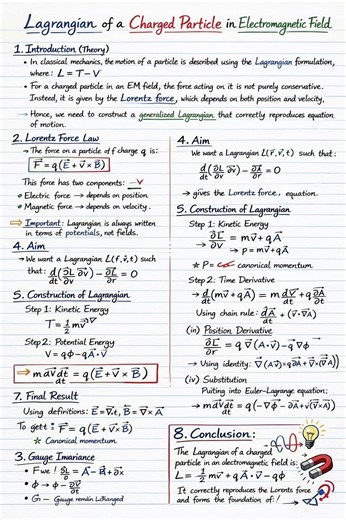 Lagrangian of a Charged Particle in Electromagnetic Field
1. Introduction (Theory)
• In classical mechanics, the motion of a particle is described using the Lagrangian formulation,
where: L = T − V
• For a charged particle in an EM field, the force acting on it is not purely conservative.
Instead, it is given by the Lorentz force, which depends on both position and velocity,
→ Hence, we need to construct a generalized Lagrangian that correctly reproduces equation
of motion.
2. Lorentz Force Law
• The force on a particle of charge q is:
F⃗ = q(E⃗ + v⃗ × B⃗)
This force has two components:
• Electric force → depends on position
• Magnetic force → depends on velocity.
⇒ Important: Lagrangian is always written
in terms of potentials, not fields.
4. Aim
→ We want a Lagrangian L(r⃗, v⃗, t) such
that: d/dt (∂L/∂v) − ∂L/∂r = 0
5. Construction of Lagrangian
Step 1: Kinetic Energy
T = 1/2 m
Step 2: Potential Energy
V = qφ − qA⃗ · V⃗
⇒ m dv⃗/dt = q(E⃗ + v⃗ × B⃗)
7. Final Result
Using definitions: B⃗ = ∇ × A⃗
To gett: F⃗ = q(E⃗ + v⃗ × B⃗)
☆ Canonical momentum
3. Gauge Invariance
• φ → φ −
Gauge remain
4. Aim
We want a Lagrangian L(r⃗, v⃗, t) such that:
d/dt (∂L/∂v) − ∂L/∂r = 0
→ gives the Lorentz force equation.
5. Construction of Lagrangian
Step 1: Kinetic Energy
→ ∂L/∂v = mv⃗ + qA⃗
→ p = mv⃗ + qA⃗
☆ P = canonical momentum
Step 2: Time Derivative
→ d/dt (mv⃗ + qA⃗) = m dv⃗/dt + q ∂A⃗/∂t
Using chain rule: dA⃗/dt + (v⃗ · ∇A⃗)
Position Derivative
∂L/∂r = q∇(A⃗ · v⃗) − q∇φ
→ Using identity:
(iv) Substitution
Puiting into Euler-Lagrange equation:
8. Conclusion:
The Lagrangian of a charged
particle in an electromagnetic field is:
L = 1/2 mv² + qA⃗ · v⃗ − qφ
It correctly reproduces the Lorents force
and forms the foundation of !